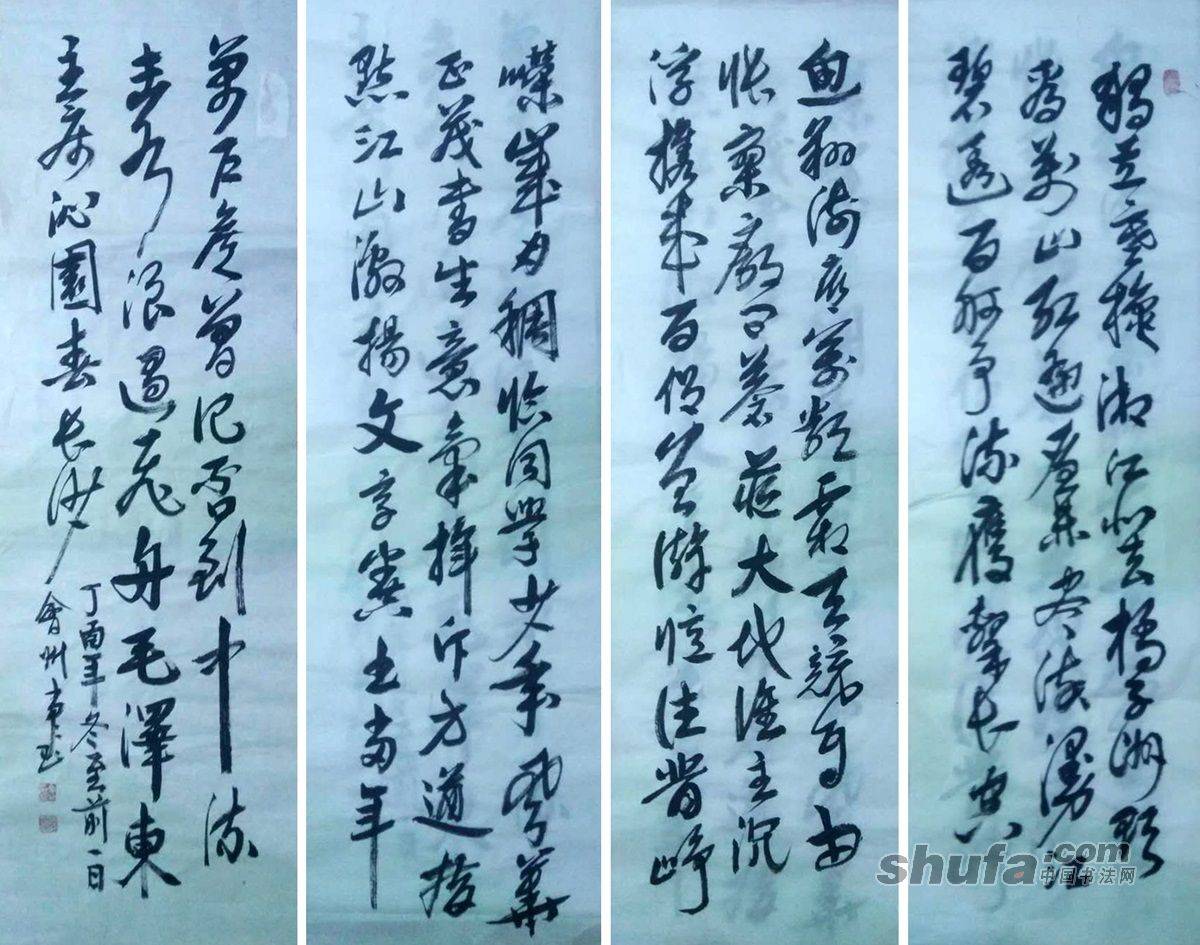 獨立寒秋湘江北去橘子洲頭
看萬山紅遍層林盡染漫江
碧透百舸爭流鷹擊長空
魚翔淺底萬類霜天競自由
悵寥廓問蒼茫大地誰主沉
浮攜來百侶曾游憶往昔崢
嶸歲月稠恰同學少年風華
正茂書生意氣揮斥方遒指
點江山激揚文字糞土當年
萬户侯曾記否到中流
擊水浪遏飛舟毛澤東
主席沁園春長沙
丁酉年冬至前一日
會州
shufa.com
中国书法网